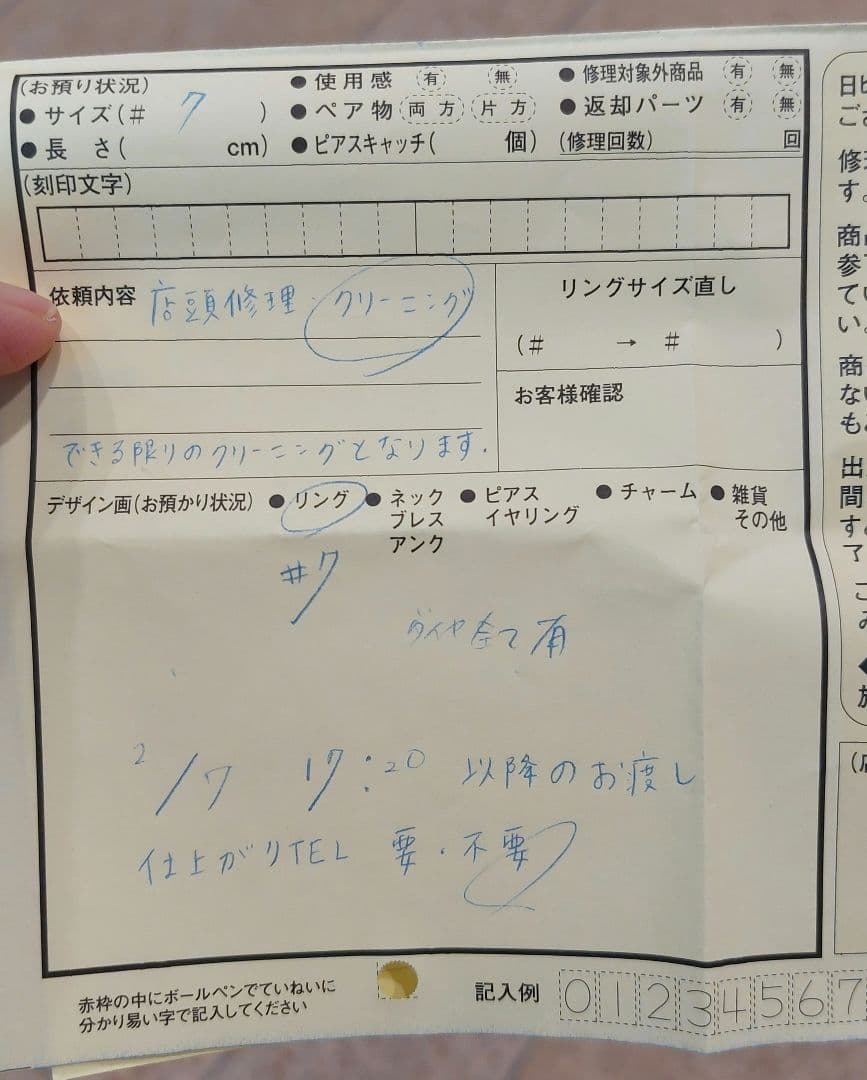 (お預り状況)
● 使用感 有 無
● 修理対象外商品 有 無
● サイズ(# 7 )
● ペア物 両方 片方
● 返却パーツ 有 無
● 長さ( cm)
● ピアスキャッチ( 個)
(修理回数) 回
(刻印文字)
依頼内容 店頭修理・クリーニング
できる限りのクリーニングとなります.
リングサイズ直し
(# → # )
お客様確認
デザイン画(お預かり状況)
● リング
● ネックブレスアンク
● ピアスイヤリング
● チャーム
● 雑貨その他
#7
ダイヤ全て有
2/7 17:20 以降のお渡し
仕上がりTEL 要・不要
赤枠の中にボールペンでていねいに
分かり易い字で記入してください
記入例 0 1 2 3 4 5 6 7